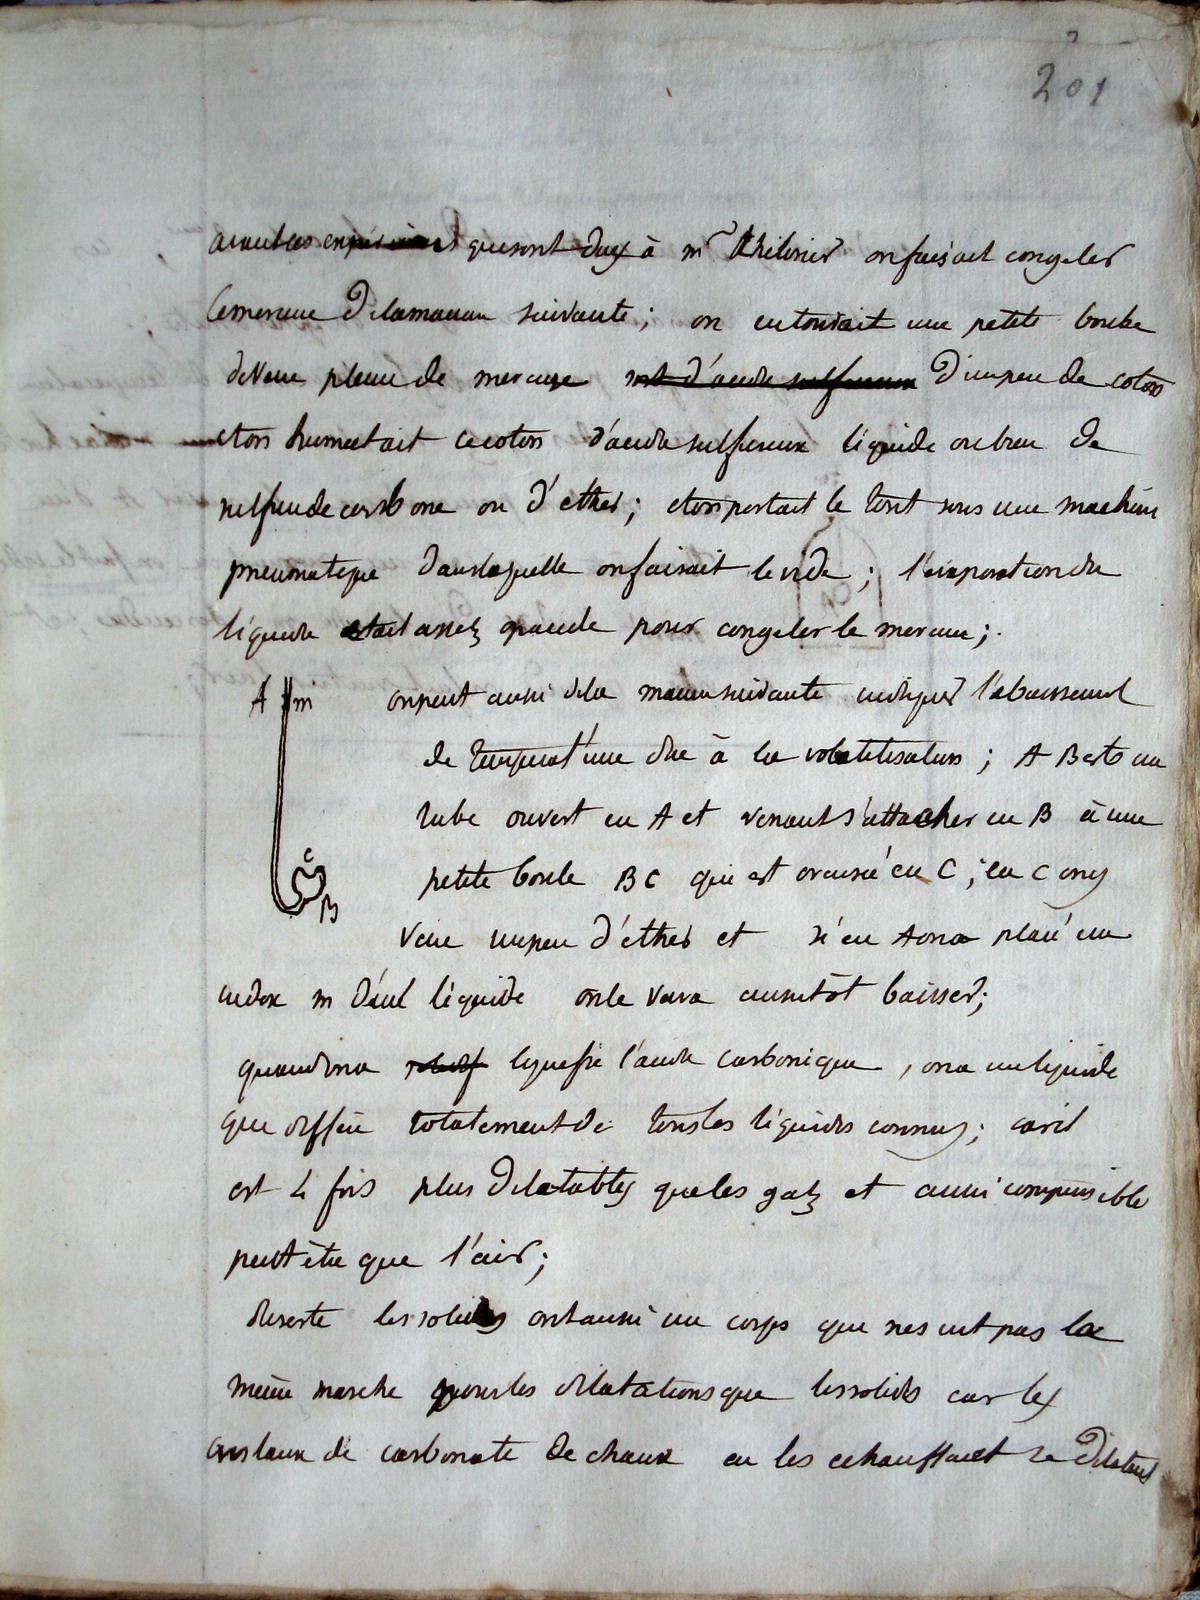 201
avant ces expériences qui sont dues à mr thilorier on faisait congeler
le mercure de la maniere suivante ; on entourait une petite boule
de verre pleine de mercure mt d'acide sulfureux d'un peu de coton
et on humectait ce coton d'acide sulfureux liquide ou bien de
sulfure de carbone ou d'ether ; et on portait le tout sous une machine
pneumatique dans laquelle on faisait le vide ; l'evaporation du
liquide etait assez grande pour congeler le mercure ;
A m on peut aussi de la maniere suivante indiquer l'abaissement
de température due à la volatilisation ; A B est un
tube ouvert en A et venant s'attacher en B à une
petite boule BC qui est creusée en C ; en C on y
C
B
verse un peu d'ether et si en A on a placé un
index m d'un liquide on le verra aussitôt baisser ;
quand on a liquefié l'acide carbonique , on a un liquide
qui differe totalement de tous les liquides connus ; car il
est 4 fois plus dilatables que les gaz et aussi compressible
peut être que l'air ;
du reste les solides ont aussi un corps qui ne suit pas la
même marche pour les dilatations que les solides car les
cristaux de carbonate de chaux en les echauffant se dilatent